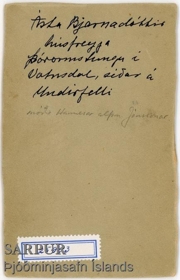 Ásta Bjarnadóttir
húsfreyja
Þórormstungu í
Vatnsdal, síðar á
Undirfelli
móðir
SARPUR
Þjóðminjasafn Íslands